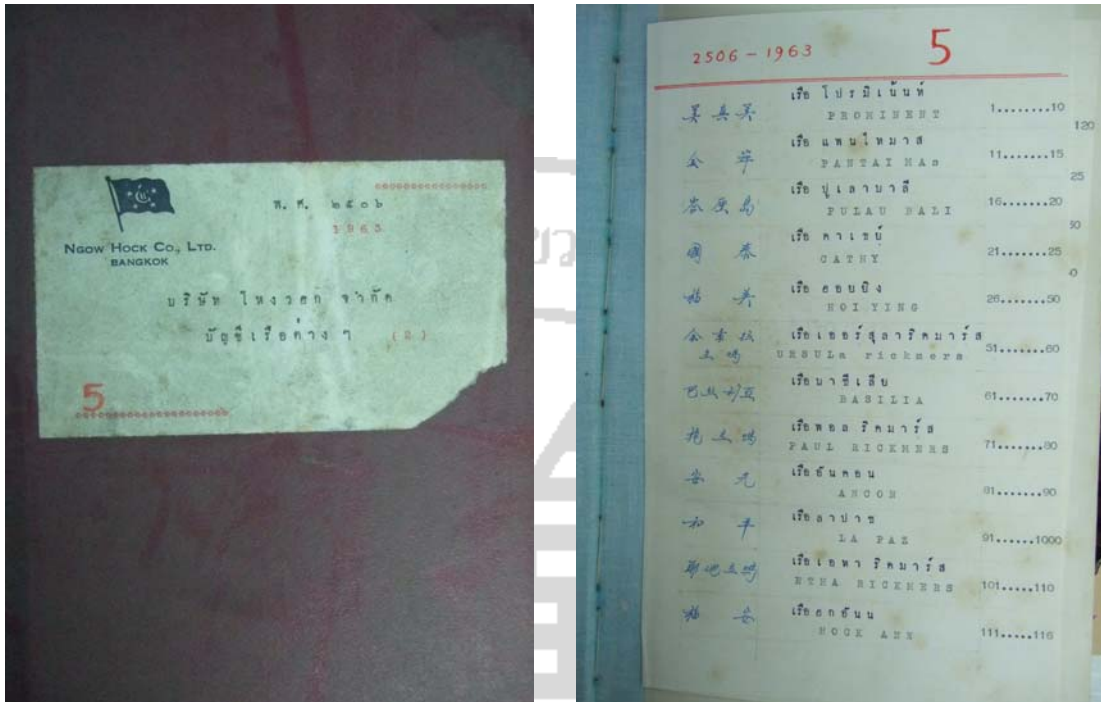 พ. ศ. ๒๕๐๖
1963
NGOW HOCK CO., LTD.
BANGKOK
บริษัท โหงวฮก จำกัด
บัญชีเรือต่าง ๆ (2)
5
2506 - 1963 5
เรือ โปรมิเน้นท์
PROMINENT 1........10
120
เรือ แพนไทมาส
PANTAI MAs 11.......15
25
เรือ ปูเลาบาลี
PULAU BALI 16.......20
เรือ คาเธย์
國 泰 CATHY 21.......25
เรือ ฮอยยิง
HOI YING 26.......50
เรือเออร์สุลาริคมาร์ส
URSULa rickmers 51.......60
เรือบาซีเลีย
BASILIA 61.......70
เรือพอล ริคมาร์ส
PAUL RICKMERS 71.......80
เรืออันคอน
ANCON 81.......90
เรือลาปาซ
和 平 LA PAZ 91......1000
เรือเอทา ริคมาร์ส
ETHA RICKMERS 101.....110
เรือฮกอันน
福 安 HOCK ANN 111.....116